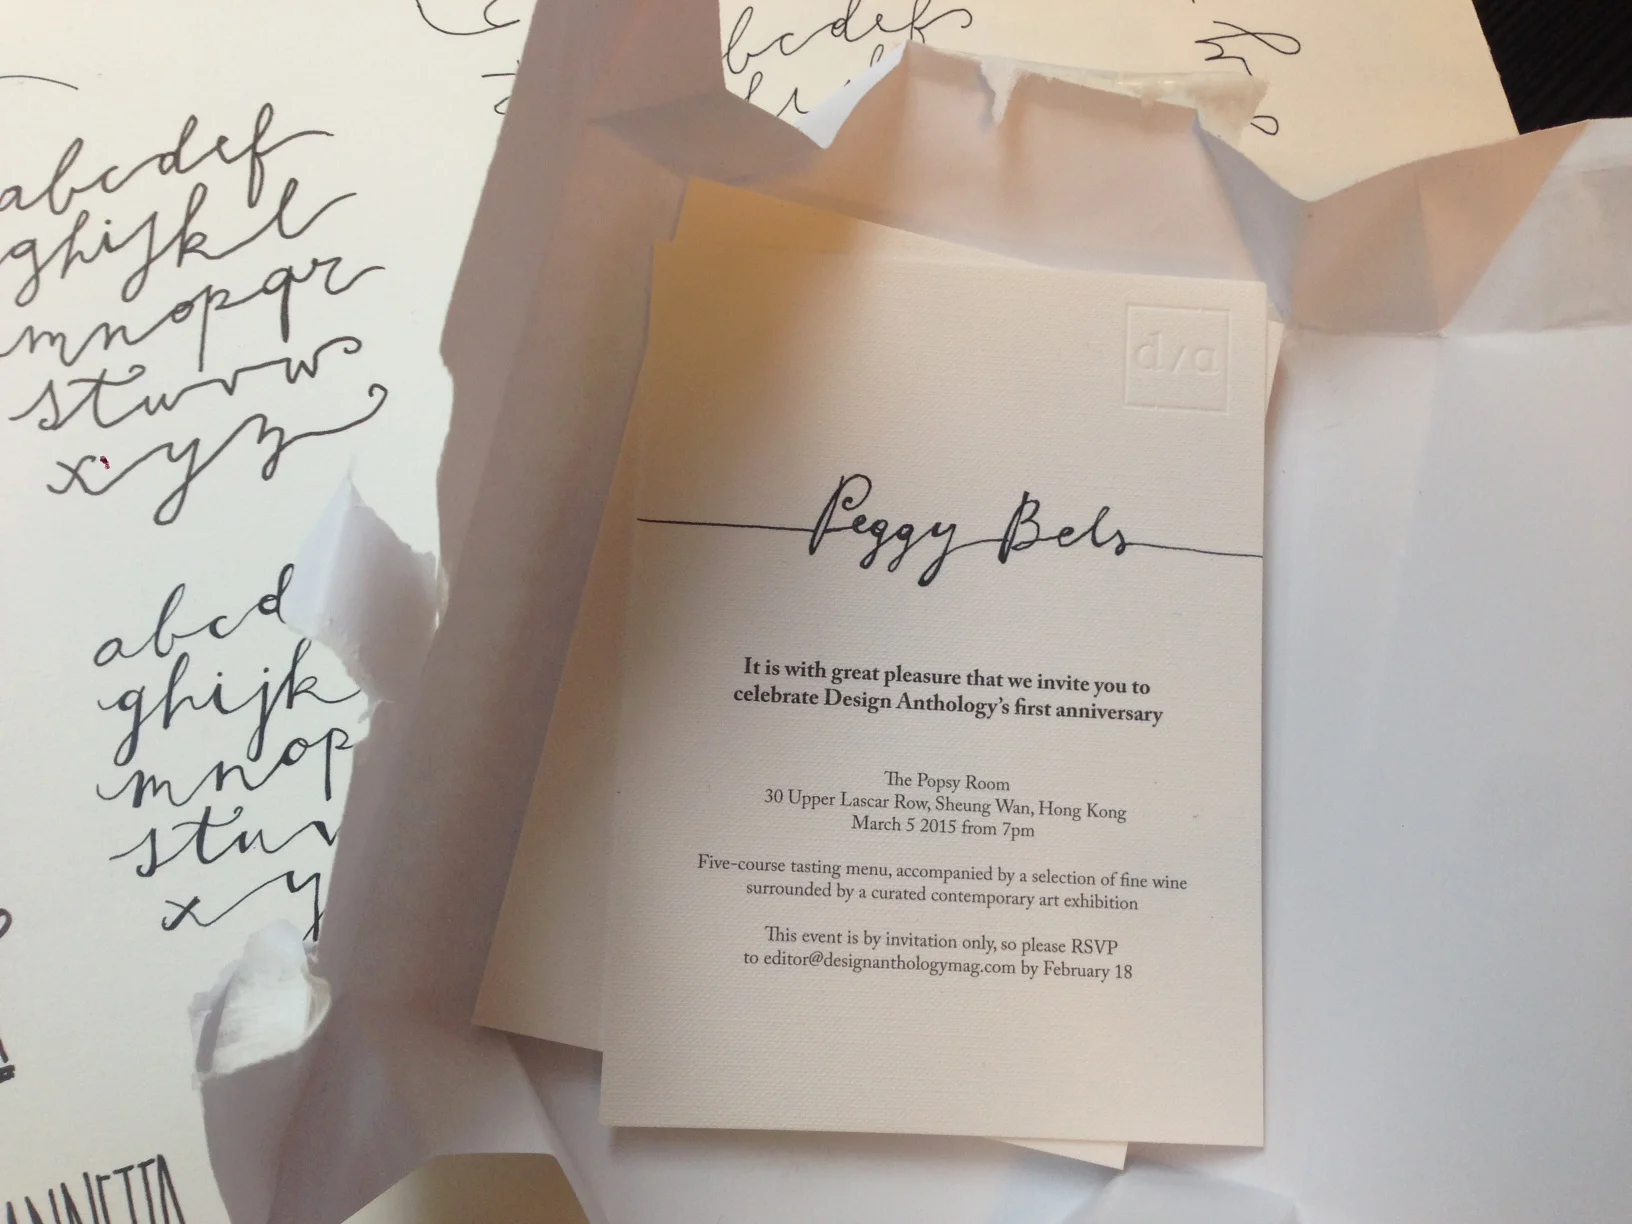 abcdef
ghijkl
mnopqr
stuvw
xyz
abcd
ghijk
mnop
stuv
xy
bcdef
d/a
Peggy Bels
It is with great pleasure that we invite you to
celebrate Design Anthology's first anniversary
The Popsy Room
30 Upper Lascar Row, Sheung Wan, Hong Kong
March 5 2015 from 7pm
Five-course tasting menu, accompanied by a selection of fine wine
surrounded by a curated contemporary art exhibition
This event is by invitation only, so please RSVP
to editor@designanthologymag.com by February 18